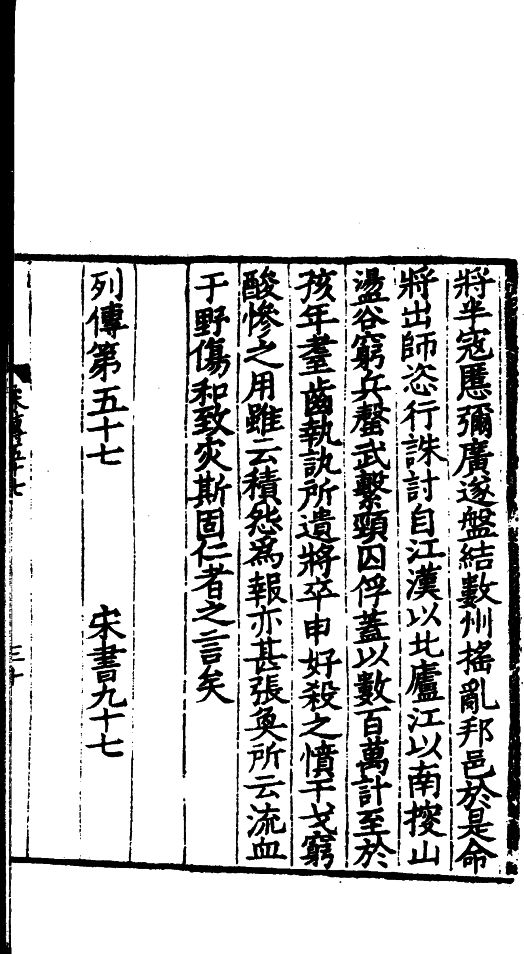 將半寇慝彌廣遂盤結數州搖亂邦邑於是命
將出師恣行誅討自江漢以北廬江以南搜山
盪谷窮兵罄武繫頸囚俘蓋以數百萬計至於
孩年耋齒執訊所遺將卒申好殺之憤干戈窮
酸慘之用雖云積怨為報亦甚張奐所云流血
于野傷和致灾斯固仁者之言矣
列傳第五十七 宋書九十七
三十